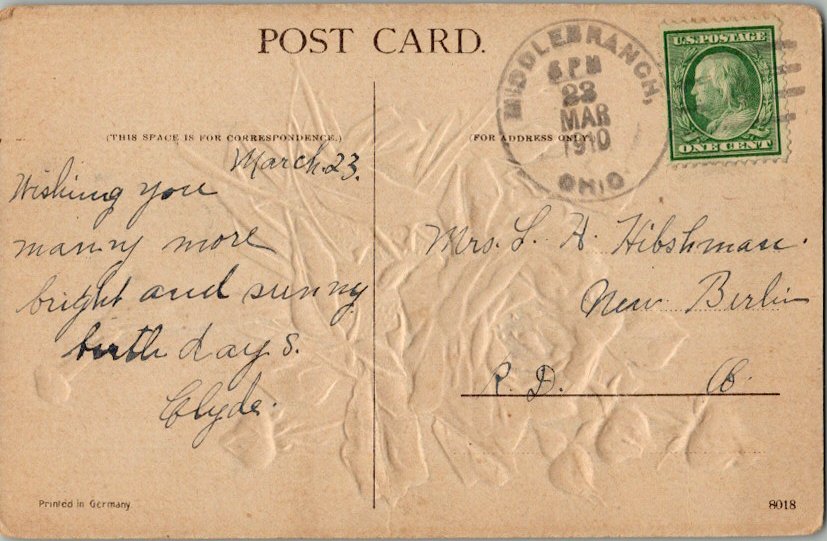 POST CARD.
(THIS SPACE IS FOR CORRESPONDENCE.)
(FOR ADDRESS ONLY.)
MIDDLEBRANCH,
6 PM
23
MAR
1910
OHIO
U.S. POSTAGE
ONE CENT
March. 23.
Wishing you
manny more
bright and sunny
birth days.
Clyde.
Mrs. L. A. Hibshman.
New Berlin
R. D. O.
Printed in Germany
8018